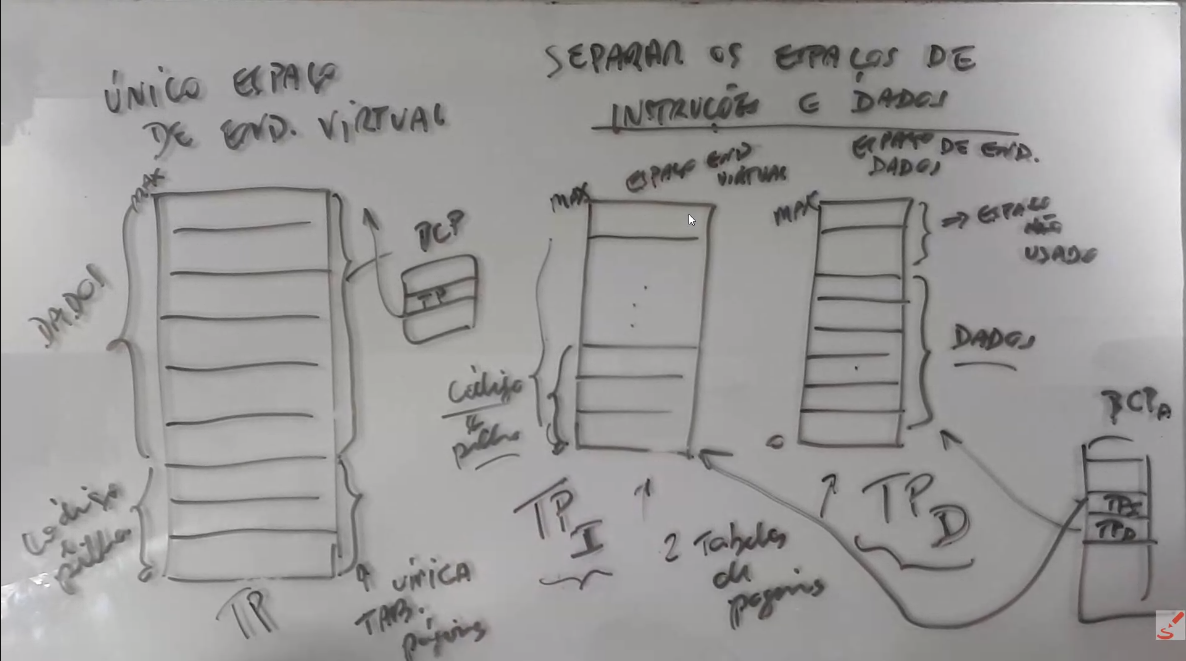 ÚNICO ESPAÇO
DE END. VIRTUAL
MAX
DADOS
Código
e
pilha
0
TP
PCP
TP
ÚNICA
TAB.
páginas
SEPARAR OS ESPAÇOS DE
INSTRUÇÕES E DADOS
ESPAÇO END
VIRTUAL
MAX
Código
e
pilha
0
TP I
2 Tabelas
de
páginas
ESPAÇO DE END.
DADOS
MAX
⇒ ESPAÇO
NÃO
USADO
DADOS
0
TP D
PCP A
TP I
TP D